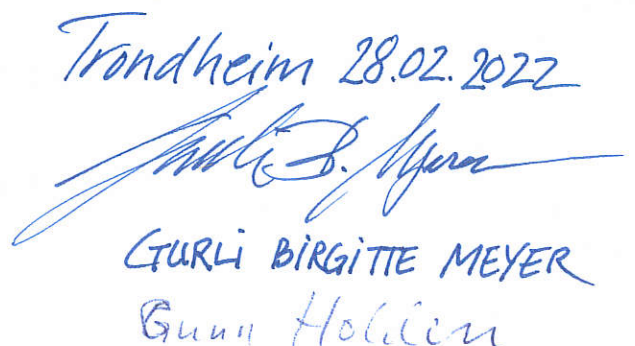 Trondheim 28.02.2022
Gurli B. Meyer
GURLi BiRGiTTE MEYER